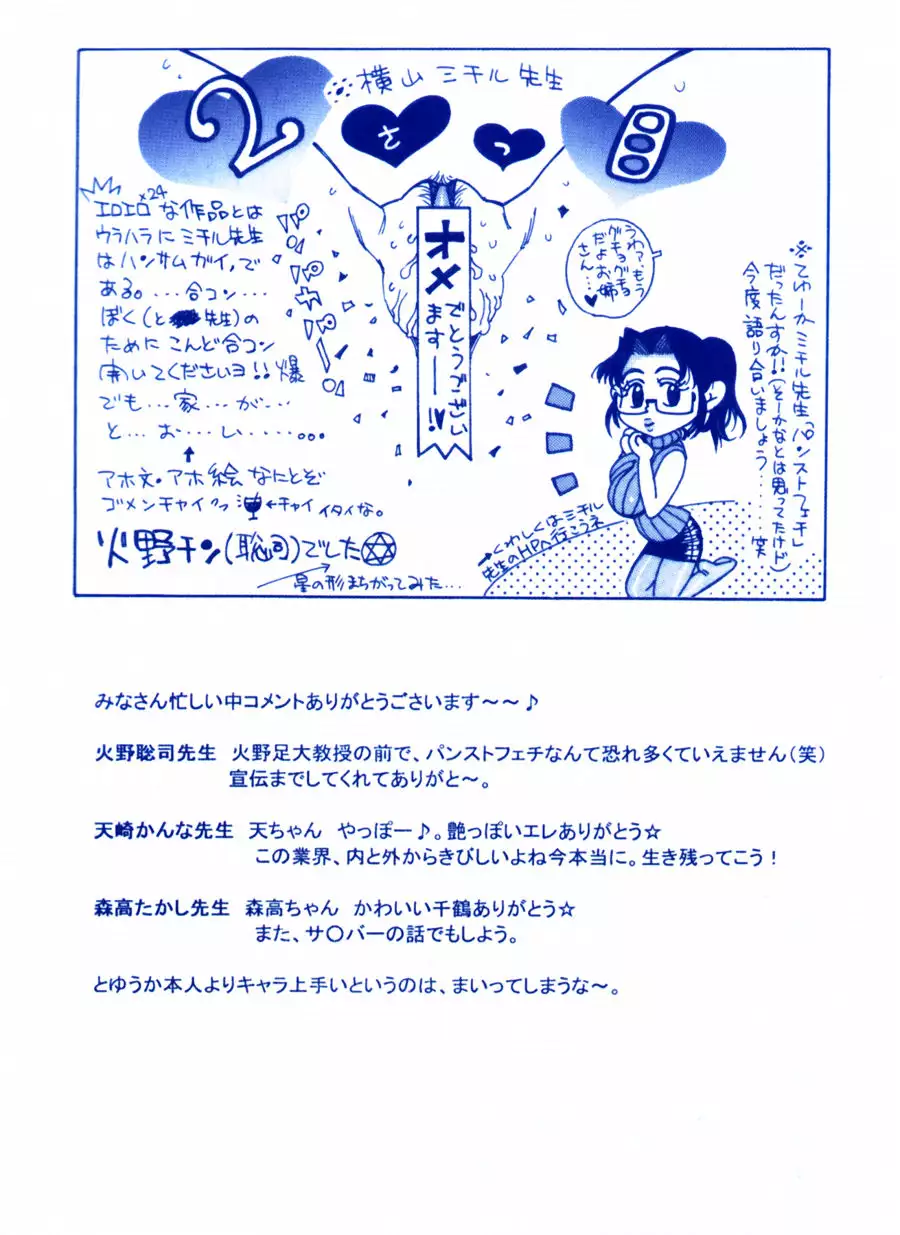 横山ミチル先生
2
さ
っ
目
エロエロ×24な作品とは
ウラハラにミチル先生
はハンサムガイ、で
ある。...合コン...
ぼく(と 先生)の
ためにこんど合コン
開いてくださいヨ!!爆
でも...家...が...
と...お...し、......
↑
アホ文・アホ絵なにとぞ
ゴメンチャイクっ ←チャイ イタイな。
火野チン(聡司)でした✡
星の形まちがってみた...
パンパカパーン
オメ
でとうござい
ます――!!
うわっもう
グチョグチョ
だよお姉
さん...♥
※てゆーかミチル先生「パンストフェチ」
だったんすか!!(そーかなとは思ってたけど)
今度語り合いましょう......笑
→くわしくはミチル
先生のHPへ行こうネ
みなさん忙しい中コメントありがとうごさいます~~♪
火野聡司先生 火野足大教授の前で、パンストフェチなんて恐れ多くていえません(笑)
宣伝までしてくれてありがと~。
天崎かんな先生 天ちゃん やっぽー♪。艶っぽいエレありがとう☆
この業界、内と外からきびしいよね今本当に。生き残ってこう!
森高たかし先生 森高ちゃん かわいい千鶴ありがとう☆
また、サ〇バーの話でもしよう。
とゆうか本人よりキャラ上手いというのは、まいってしまうな~。